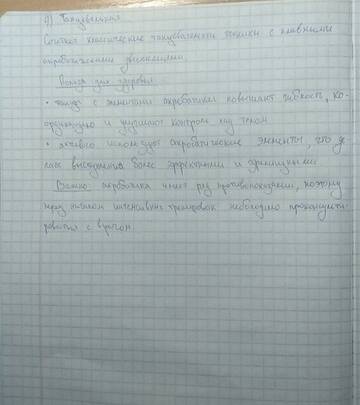 4) Танцевальная
Сочетает классические танцевальные техники с плавными
акробатическими движениями
Польза для здоровья
• танцы с элементами акробатики повышают гибкость, ко-
ординацию и улучшают контроль над телом
• активно используют акробатические элементы, что де-
лает выступления более эффектными и зрелищными
Важно: акробатика имеет ряд противопоказаний, поэтому
перед началом интенсивных тренировок необходимо проконсульти-
роваться с врачом.